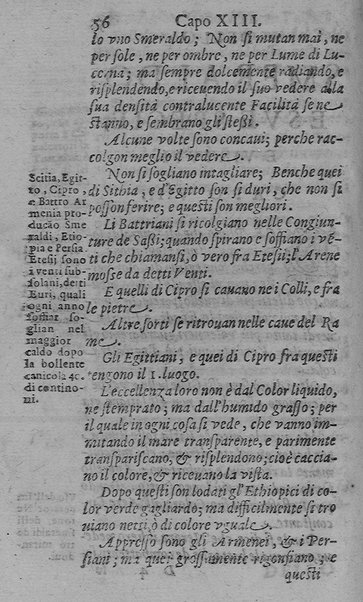 56 Capo XIII.
lo vno Smeraldo; Non si mutan mai, ne
per sole, ne per ombre, ne per Lume di Lu-
cerna; ma sempre dolcemente radiando, e
risplendendo, e riceuendo il suo vedere alla
sua densità contralucente Facilità se ne
stanno, e sembrano gli stessi.
Alcune volte sono concaui; perche rac-
colgon meglio il vedere.
Non si sogliano intagliare; Benche quei
di Sithia, e d'Egitto son si duri, che non si
posson ferire; e questi son megliori.
Li Battriani si ricolgiano nelle Congiun-
ture de Sassi; quando spirano e soffiano i vē-
ti che chiamansi, ò vero fra Etesii; l'Arene
mosse da detti Venti.
E quelli di Cipro si cauano ne i Colli, e fra
le pietre.
Altre sorti se ritrouan nelle caue del Ra
me.
Gli Egittiani, e quei di Cipro fra questi
tengono il 1. luogo.
L'eccellenza loro non è dal Color liquido,
ne stemprato; ma dall'humido grasso; per
il quale in ogni cosa si vede, che vanno im-
mutando il mare transparente, e parimente
transpariscano, & risplendono; cioè caccia-
no il colore, & riceuano la vista.
Dopo questi son lodati gl'Ethiopici di co-
lor verde gagliardo; ma difficilmente si tro
uiano netti, ò di colore vguale.
Appresso sono gli Armenei, & i Per-
siani; ma quei grossamente rigonfiano; e
questi
Scitia, Egit-
to, Cipro,
e Battro Ar
menia pro-
ducāo Sme
raldi, Etio
pia e Persia
Etesij sono
i venti sub-
solani, detti
Euri, quali
ogni anno
soffiar so-
glian nel
maggior
caldo dopo
la bollente
canicola 4c.
di contino-
ni.